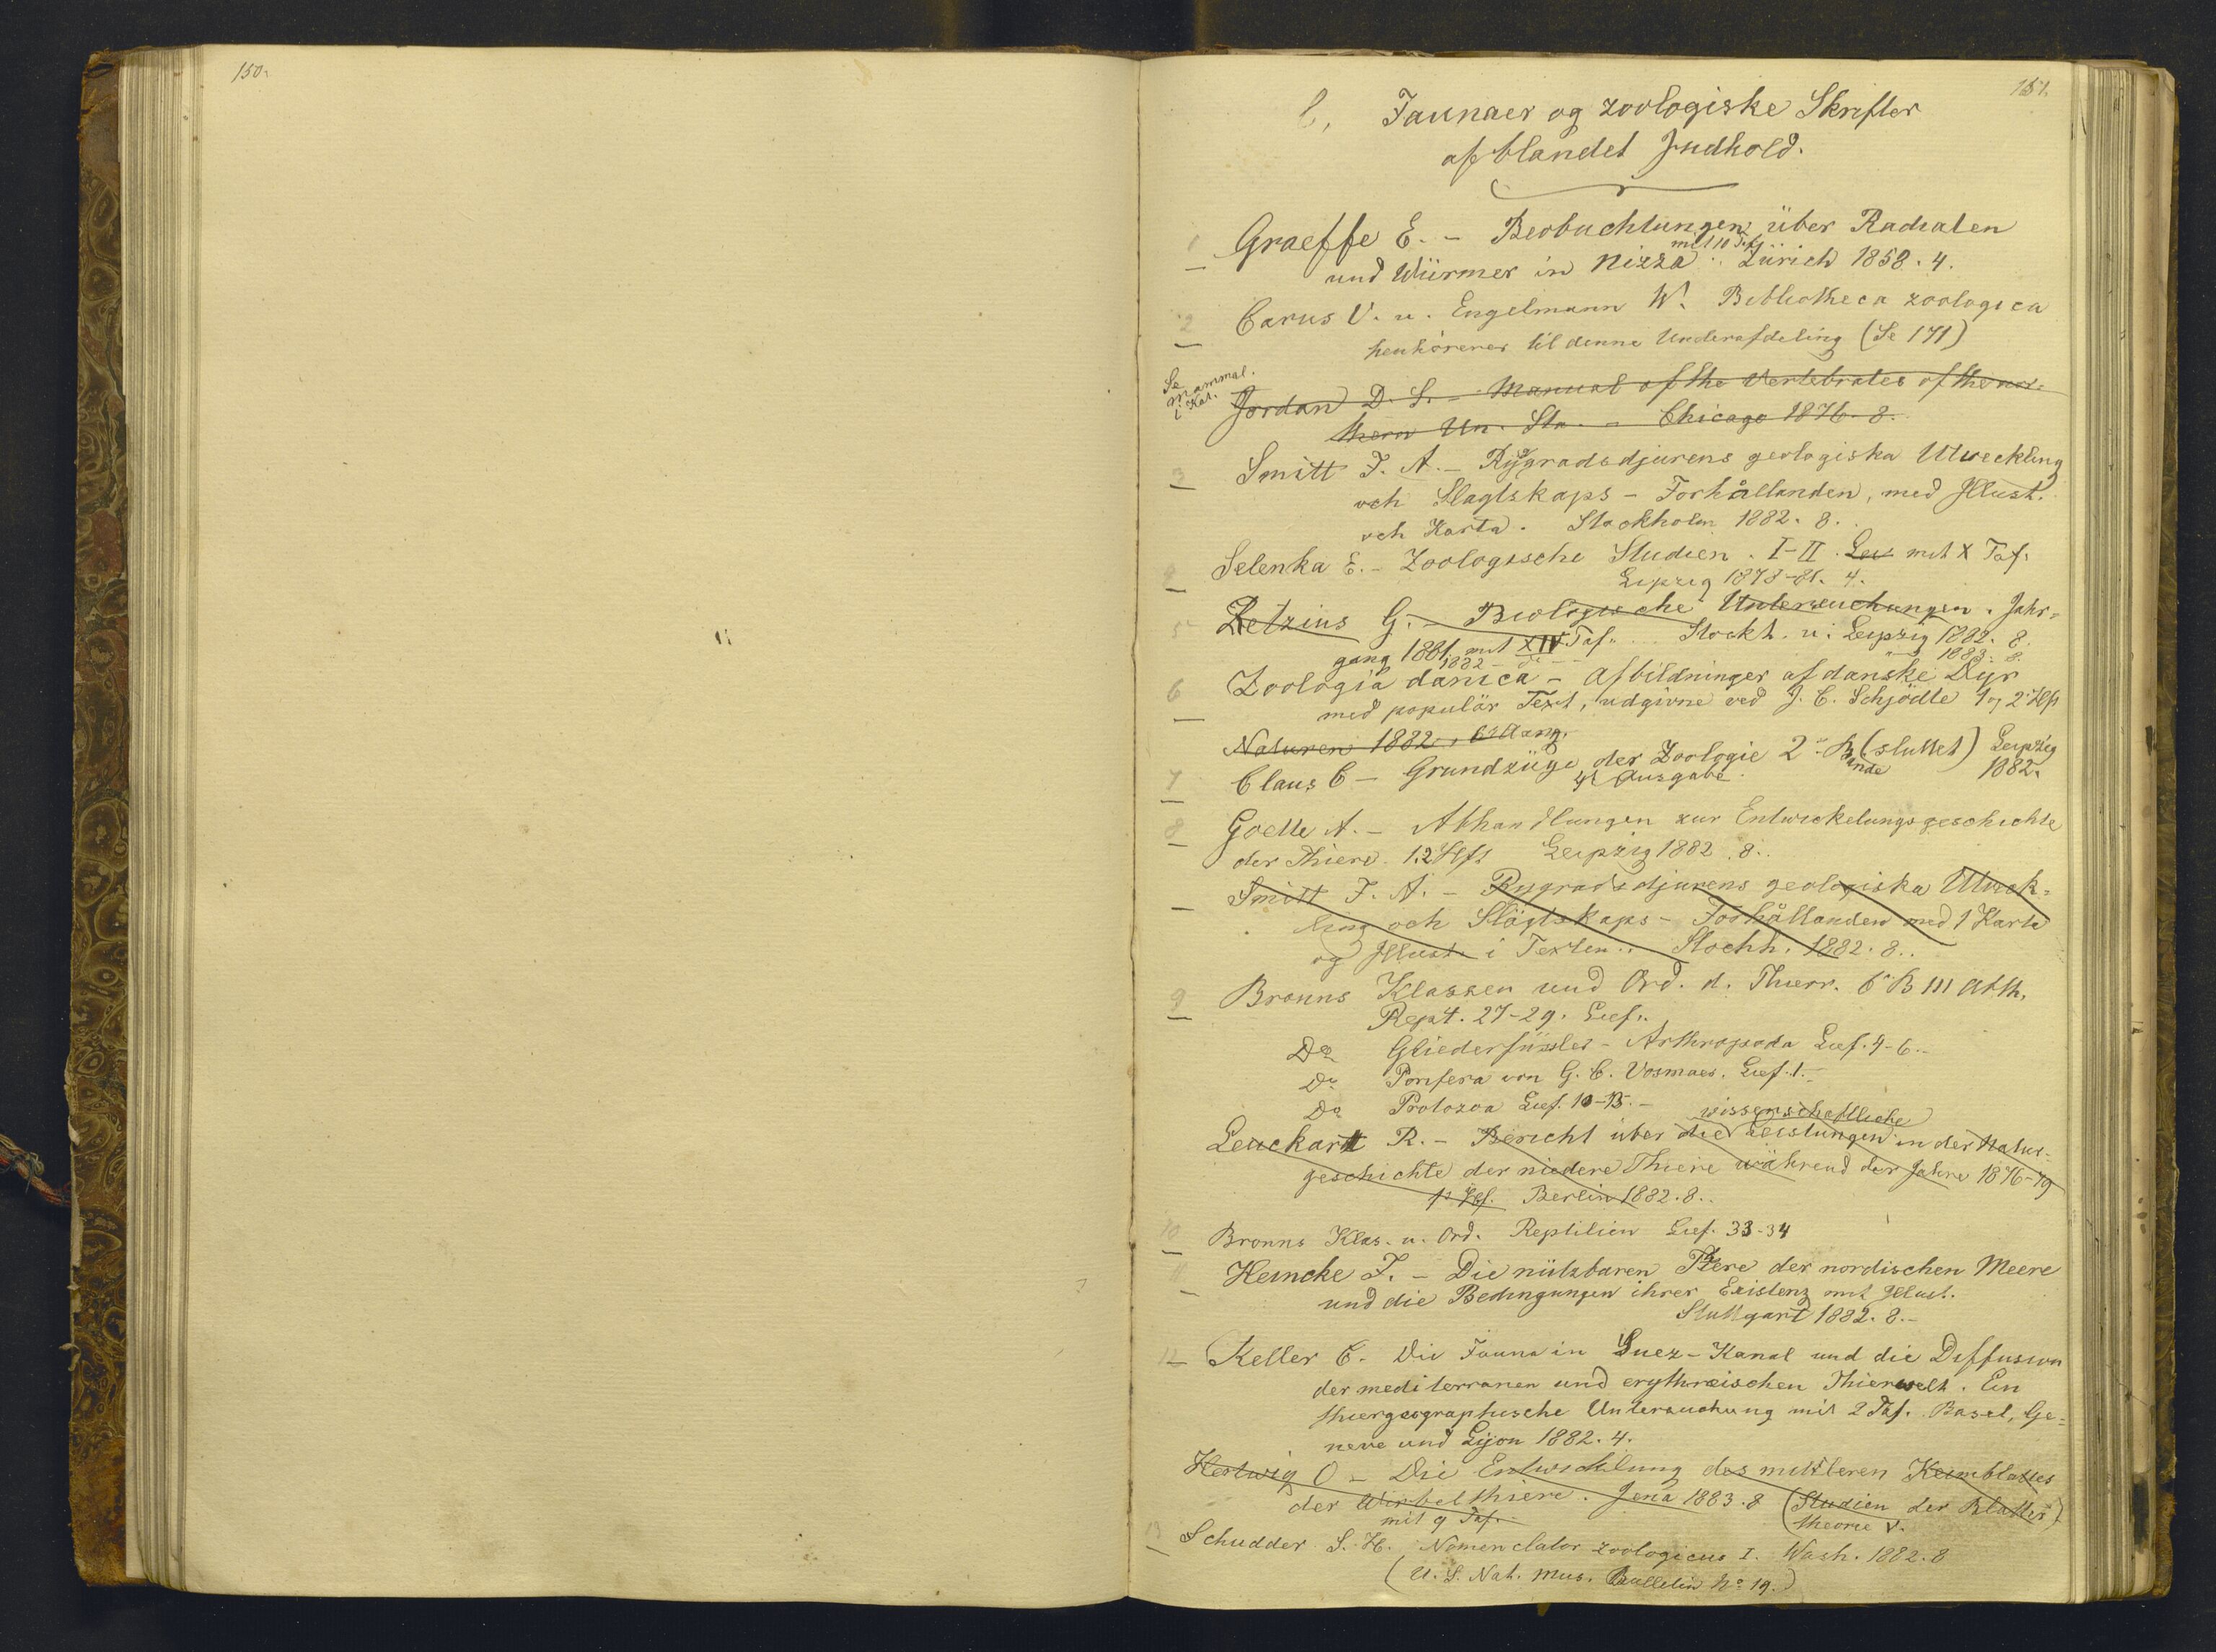 150.
151.
C. Faunaer og zoologiske Skrifter
af blandet Indhold.
1 Graeffe E. – Beobachtungen über Radiaten
mit 10 Taf.
und Würmer in Nizza. Zürich 1858. 4.
2 Carus V. u. Engelmann W. Bibliotheca zoologica
henhörener til denne Underafdeling (Se 171)
Se
Mammal.
i Kat.
Jordan D. S. – Manual of the Vertebrates of the nor=
thern Un. Sta. – Chicago 1876. 8.
3 Smitt F. A. – Ryggradsdjurens geologiska Utveckling
och Slagtskaps – Forhållanden, med Illust.
och Karta. Stockholm 1882. 8.
Selenka E. – Zoologische Studien. I–II. Lei mit X Taf.
Leipzig 1878–81. 4.
5 Retzius G. – Biologische Untersuchungen. Jahr=
gang 1881 mit XIV Taf. Stockh. u. Leipzig 1882. 8.
1882 – do – – " 1883. 8.
6 Zoologia danica – Afbildninger af danske Dyr
med populär Text, udgivne ved J. C. Schjödte 1 og 2 Hft
Naturen 1882, Aarg.
7 Claus C – Grundzüge der Zoologie 2n Bande (sluttet) Leipzig
4t Ausgabe 1882.
8 Goette A. – Abhandlungen zur Entwickelungsgeschichte
der Thiere 1.2 Hft Leipzig 1882. 8.
Smitt F. A. – Rygradsdjurens geologiska Utveck=
ling och Slägtskaps – Forhållanden med 1 Karta
og Illust. i Texten. Stockh. 1882. 8.
9 Bronns Klassen und Ord. d. Thierr. 6 B III Abth.
Rept. 27–29. Lief.
Do Gliederfüssler – Arthropoda Lief. 4–6.
Do Porifera von G. C. Vosmaer. Lief. 1.
Do Protozoa Lief. 10–15. –
wissenschaftliche
Leuckart R. – Bericht über die Leistungen in der Natur=
geschichte der niedere Thiere während der Jahre 1876–79
1e Hef. Berlin 1882. 8.
10 Bronns Klas. u. Ord. Reptilien Lief. 33–34
11 Heincke F. – Die nützbaren Thiere der nordischen Meere
und die Bedingungen ihrer Existenz mit Illust.
Stuttgart 1882. 8. –
12 Keller C. Die Fauna in Suez-Kanal und die Diffusion
der mediterranen und erythräischen Thierwelt. Ein
thiergeographische Untersuchung mit 2 Taf. Basel, Ge=
neve und Lyon 1882. 4.
Hertwig O – Die Entwicklung des mittleren Keimblattes
der Wirbelthiere. Jena 1883. 8 (Studien der Blätter)
mit 9 Taf. theorie V.
13 Schudder S. H. Nomenclator zoologicus I. Wash. 1882. 8
(U. S. Nat. Mus. Bulletin No 19.)